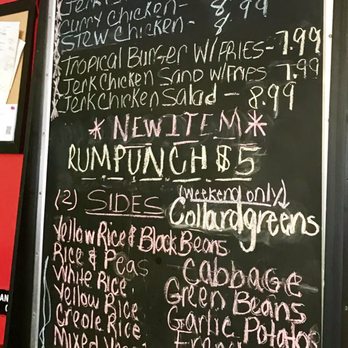 Curry Chicken - 8.99
Stew Chicken - 8
Tropical Burger w/ Fries - 7.99
Jerk Chicken Sand w/ Fries 7.99
Jerk Chicken Salad - 8.99
* NEW ITEM *
RUM PUNCH $5
(2) SIDES (weekend only)
Collardgreens
Yellow Rice & Black Beans
Rice & Peas
Cabbage
White Rice
Green Beans
Yellow Rice
Garlic Potatos
Creole Rice
Mixed